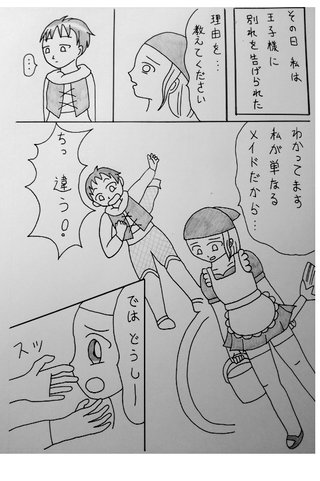 その日 私は
王子様に
別れを告げられた
理由を…
教えてください
…
わかってます
私が単なる
メイドだから…
ちっ
違う！
では どうしー
スッ